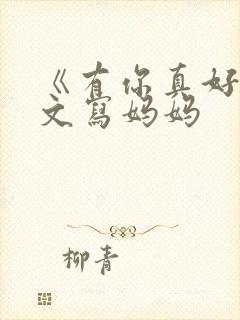 《有你真好
文寫妈妈
柳青